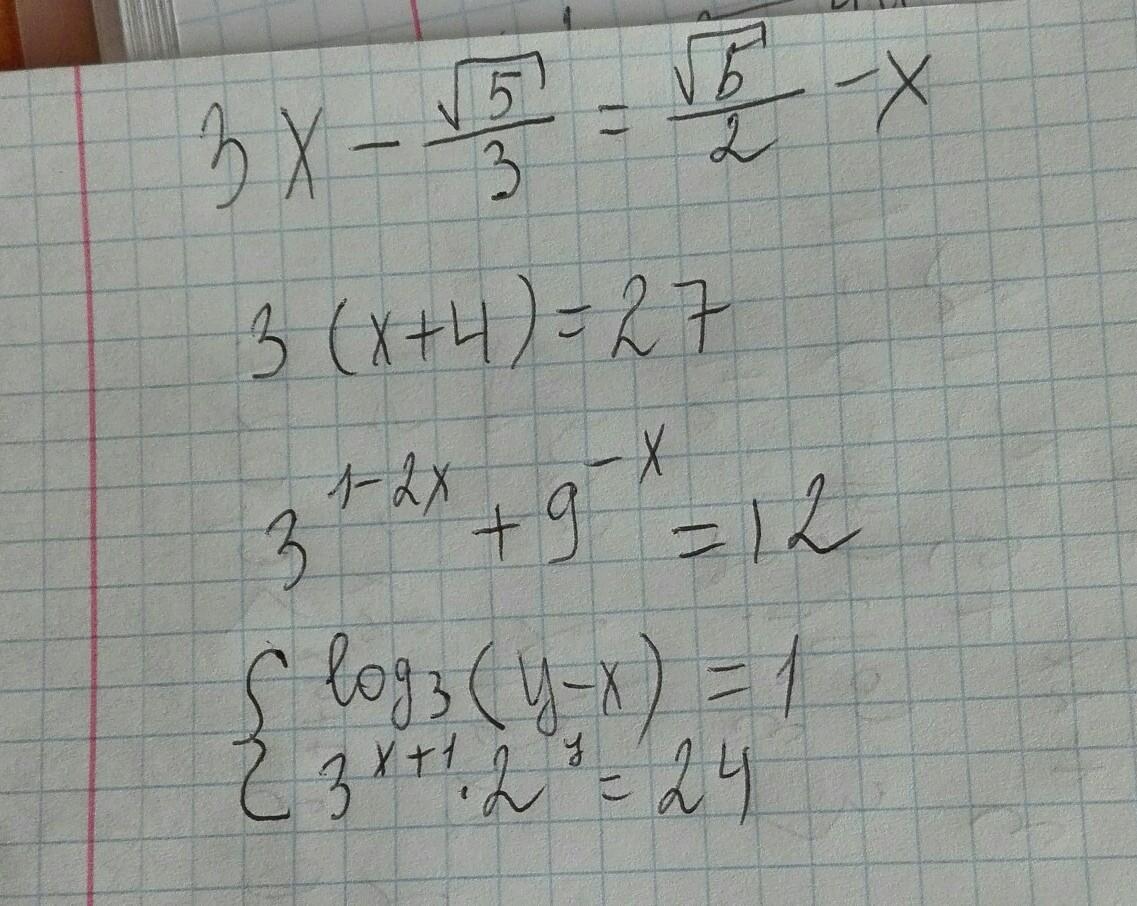 3x - √5/3 = √5/2 - x
3(x+4) = 27
3^(1-2x) + 9^(-x) = 12
{ log₃(y-x) = 1
3^(x+1) · 2^y = 24